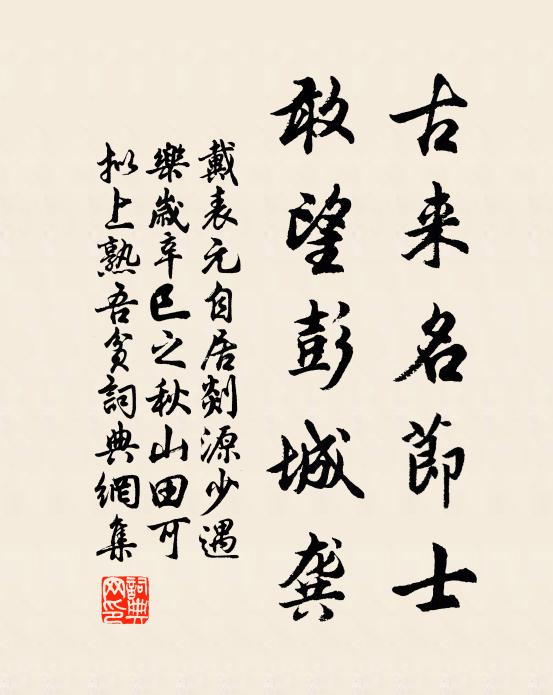 古来名節士
敢望彭城龔
戴表元自居剡源少遇
樂歲辛巳之秋山田可
拟上熟吾貧詞典網集